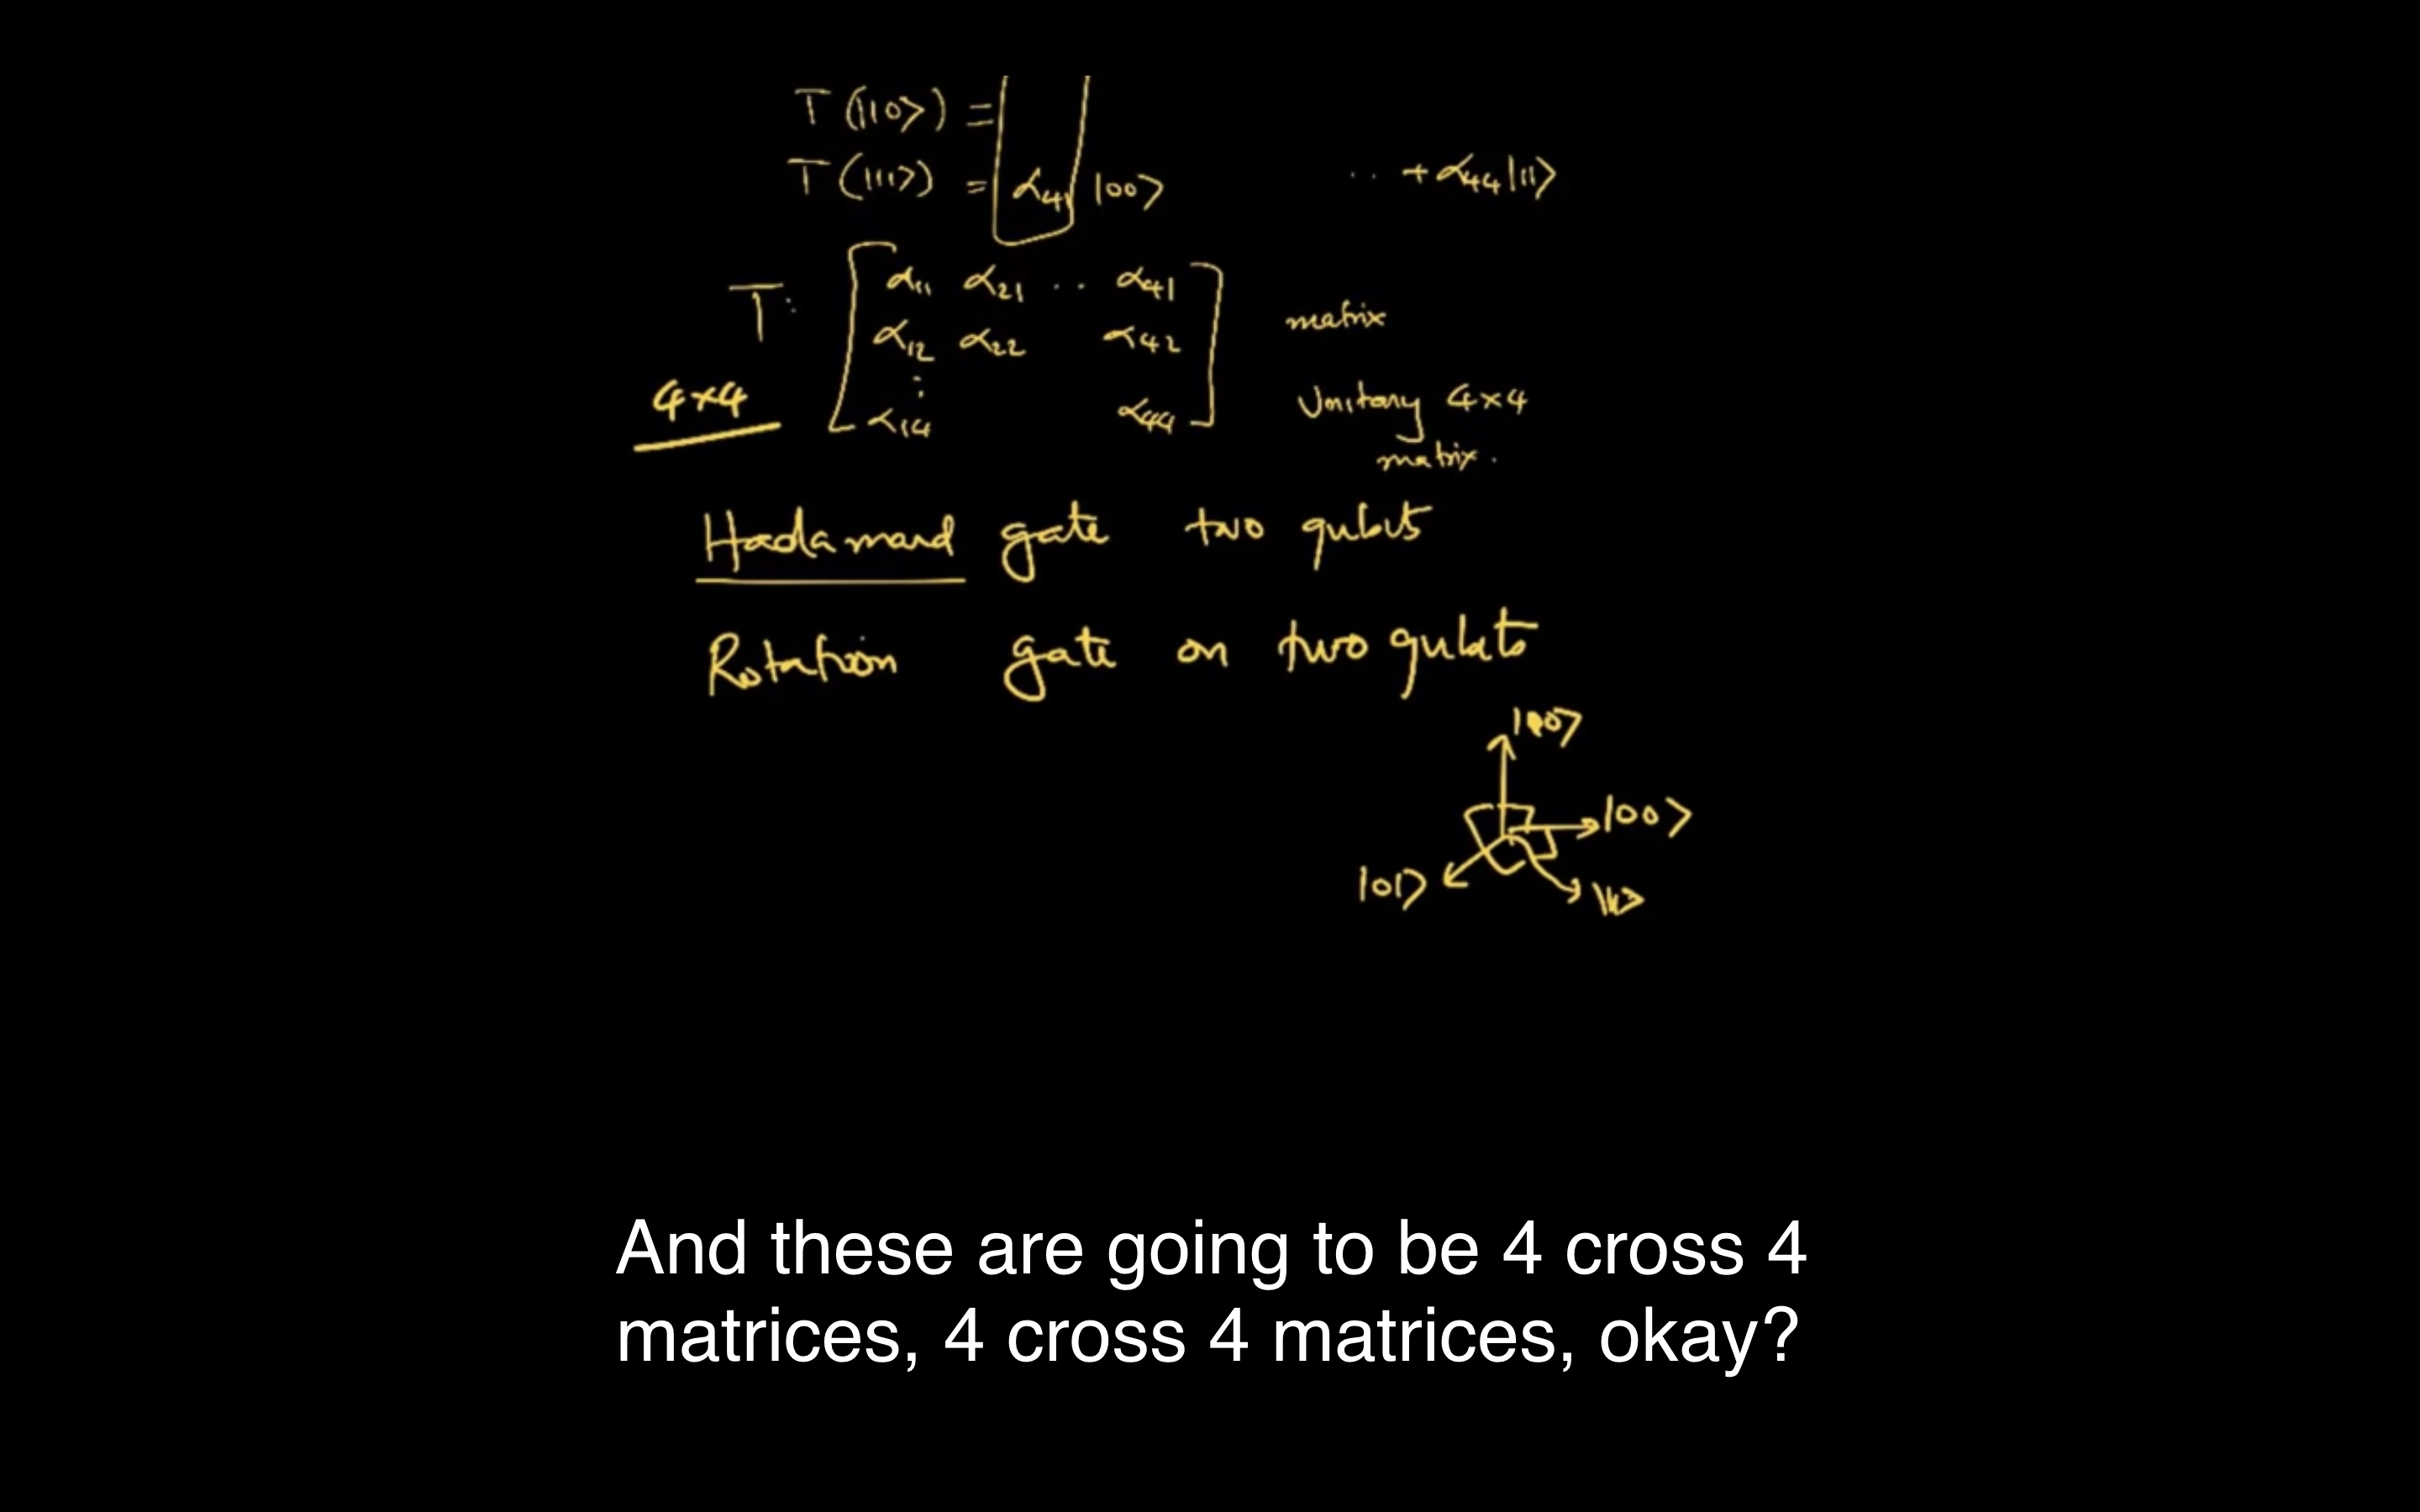 T(|10⟩) =
T(|11⟩) = α41 |00⟩ .. + α44|11⟩
T: α11 α21 .. α41
α12 α22 α42 matrix
4×4 ⋮
α14 α44 Unitary 4×4
matrix.
Hadamard gate two qubits
Rotation gate on two qubits
|10⟩
|00⟩
|01⟩ |11⟩
And these are going to be 4 cross 4
matrices, 4 cross 4 matrices, okay?